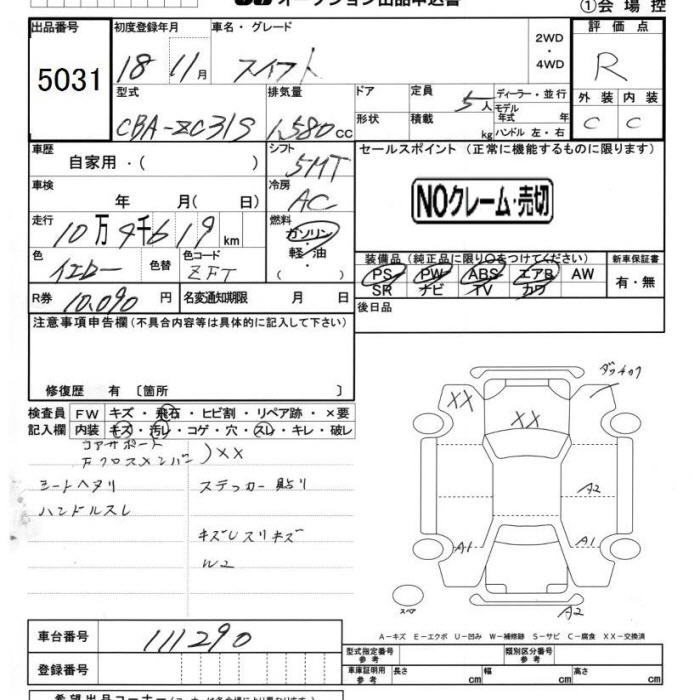 オークション出品申込書
①会場控
出品番号 初度登録年月 車名・グレード 2WD 評価点
5031 18 11月 スイフト ・ R
4WD
型式 排気量 ドア 定員 5人 ディーラー・並行 外装 内装
CBA-ZC31S 1,580cc 形状 積載 kg モデル年式 年 C C
ハンドル 左・右
車歴 シフト セールスポイント (正常に機能するものに限ります)
自家用・( ) 5MT
車検 冷房 NOクレーム・売切
年 月( 日) AC
走行 燃料
10万4千619km ガソリン・軽油
( )
色 色替 色コード 装備品(純正品に限り○をつけてください) 新車保証書
イエロー ZFT PS PW ABS エアB AW 有・無
SR ナビ TV カワ
R券 10,090円 名変通知期限 月 日 後日品
注意事項申告欄(不具合内容等は具体的に記入して下さい)
修復歴 有 〔箇所 〕
検査員 FW キズ・飛石・ヒビ割・リペア跡・×要
記入欄 内装 キズ・汚レ・コゲ・穴・スレ・キレ・破レ
コアサポート
下クロスメンバー )XX
シートヘタリ ステッカー貼り
ハンドルスレ
キズUスリキズ
W2
XX
XX
A2
A1 A1
スペア A2
A-キズ E-エクボ U-凹み W-補修跡 S-サビ C-腐食 XX-交換済
車台番号 111290
型式指定番号 参考 類別区分番号 参考
登録番号 車庫証明用 参考 長さ cm 幅 cm 高さ cm